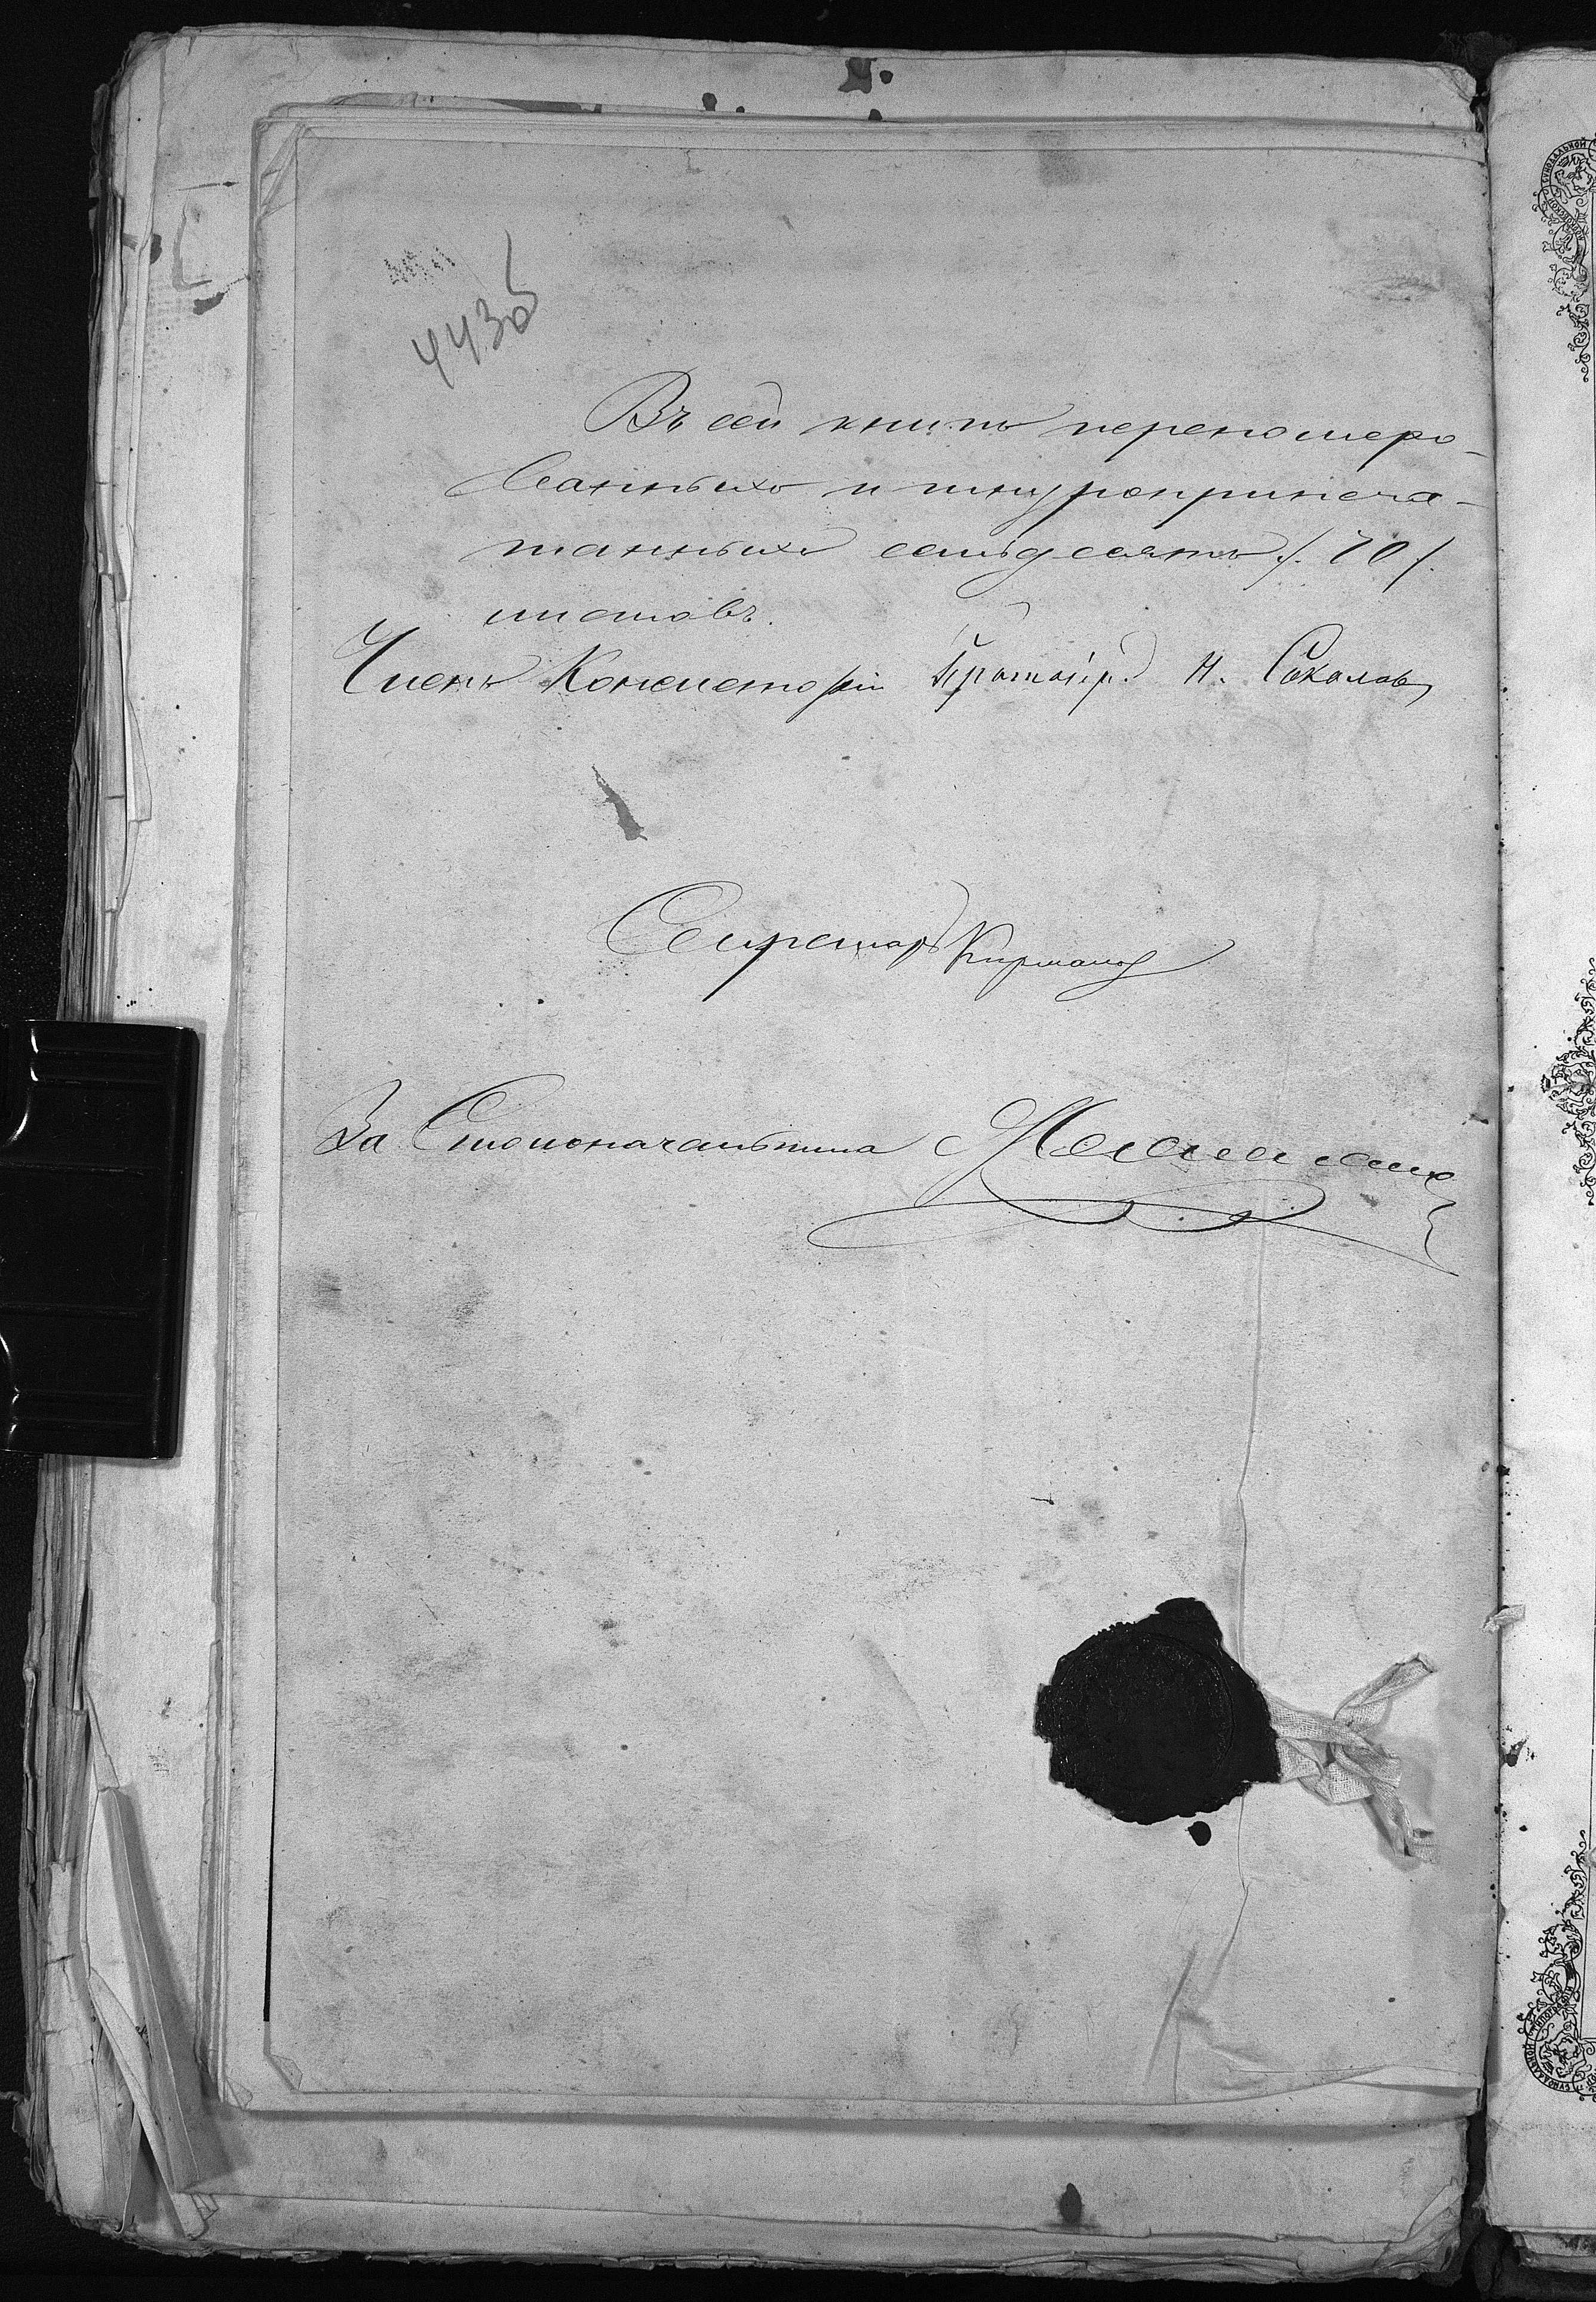 443б
Въ сей книгѣ перенумеро-
ванныхъ и шнуроприпеча-
танныхъ семьдесятъ /. 70 /.
листовъ.
Членъ Консисторіи Протоіер. Н. Соколовъ
Секретарь
За Столоначальника